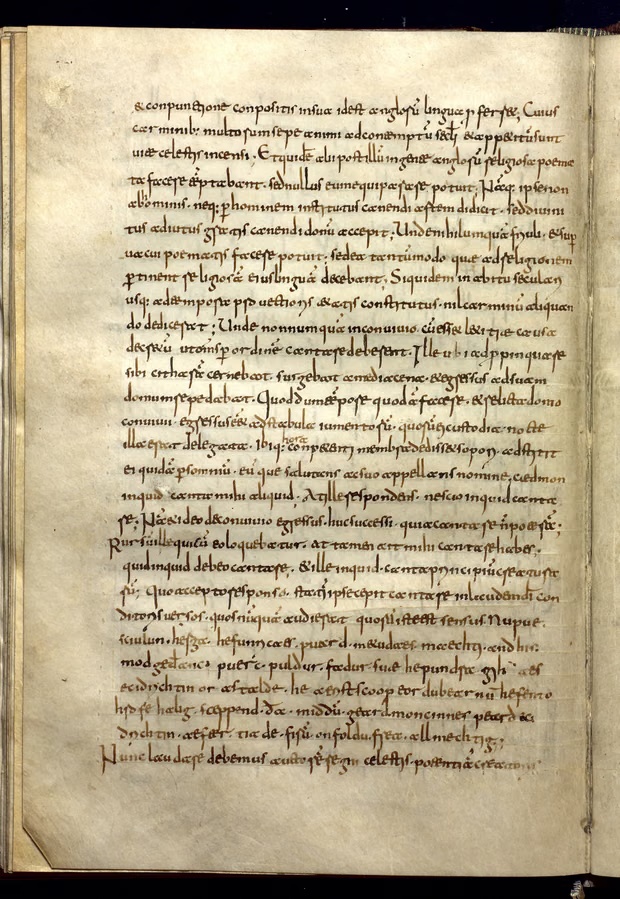 & conpunctione conpositis in sua id est anglosū lingua proferret; Cuius
carminib; multorum sepe animi ad contemptū sec̄li & appetitū sunt
uitae celestis incensi; Et quidē alii post illū in gente anglorū religiosa poema
ta facere temptabant. sed nullus eum equiparare potuit; Nāq; ipse non
ab hominib;. neq; p hominem institutus canendi artem didicit. sed diuini
tus adiutus gratis canendi donū accepit; Unde nihil umquā friuoli. & sup
uacui poematis facere potuit; sed ea tantummodo que ad religionem
pertinent religiosā eius linguā decebant; Siquidem in abitu seculari
usq; ad tempora prouectioris aetatis constitutus. nil carminū aliquan
do dedicerat; Unde nonnumquā in conuiuio. cū esset letitiae causa
decretū ut omnes p ordinē cantare deberent. Ille ubi adppinquare
sibi citharā cernebat. surgebat a media cena. & egressus ad suam
domum repedabat. Quod dum tempore quodā faceret. & relicta domo
conuiui. egressus eēt ad stabula iumentorū. quorū ei custodia nocte
illa erat delegata. ibiq; hora conpetenti membra dedisset sopori. adstitit
ei quidā p somniū. eū que salutans ac suo appellans nomine; cedmon
inquid canta mihi aliquid. At ille respondens. nescio inquid canta
re; Nā & ideo de conuiuio egressus. huc successi. quia cantare n̄ poterā;
Rursū ille qui cū eo loquebatur. at tamen ait mihi cantare habes;
quid inquid debeo cantare; & ille inquid. canta principiū creatura
rū; Quo accepto responso. statī ipse cepit cantare in laudem di con
ditoris uersos. quos nūquā audierat quorū iste est sensus Nu pue
sciulun. herga. hefunricaes. puard. metudaes. maechti. and his.
modgedanc. puerc. puldur. fadur. sue he pundra gih aes
eci drichtin or astalde. he aerist scoop eor dubearnū hefen to
hrofe halig. sceppend. da. middū. geard. moncinnes peard eci
drichtin. aefter. tiade. firū. on foldu. frea. allmechtig;
Nunc laudare debemus auctorē regni celestis. potentiā creatoris